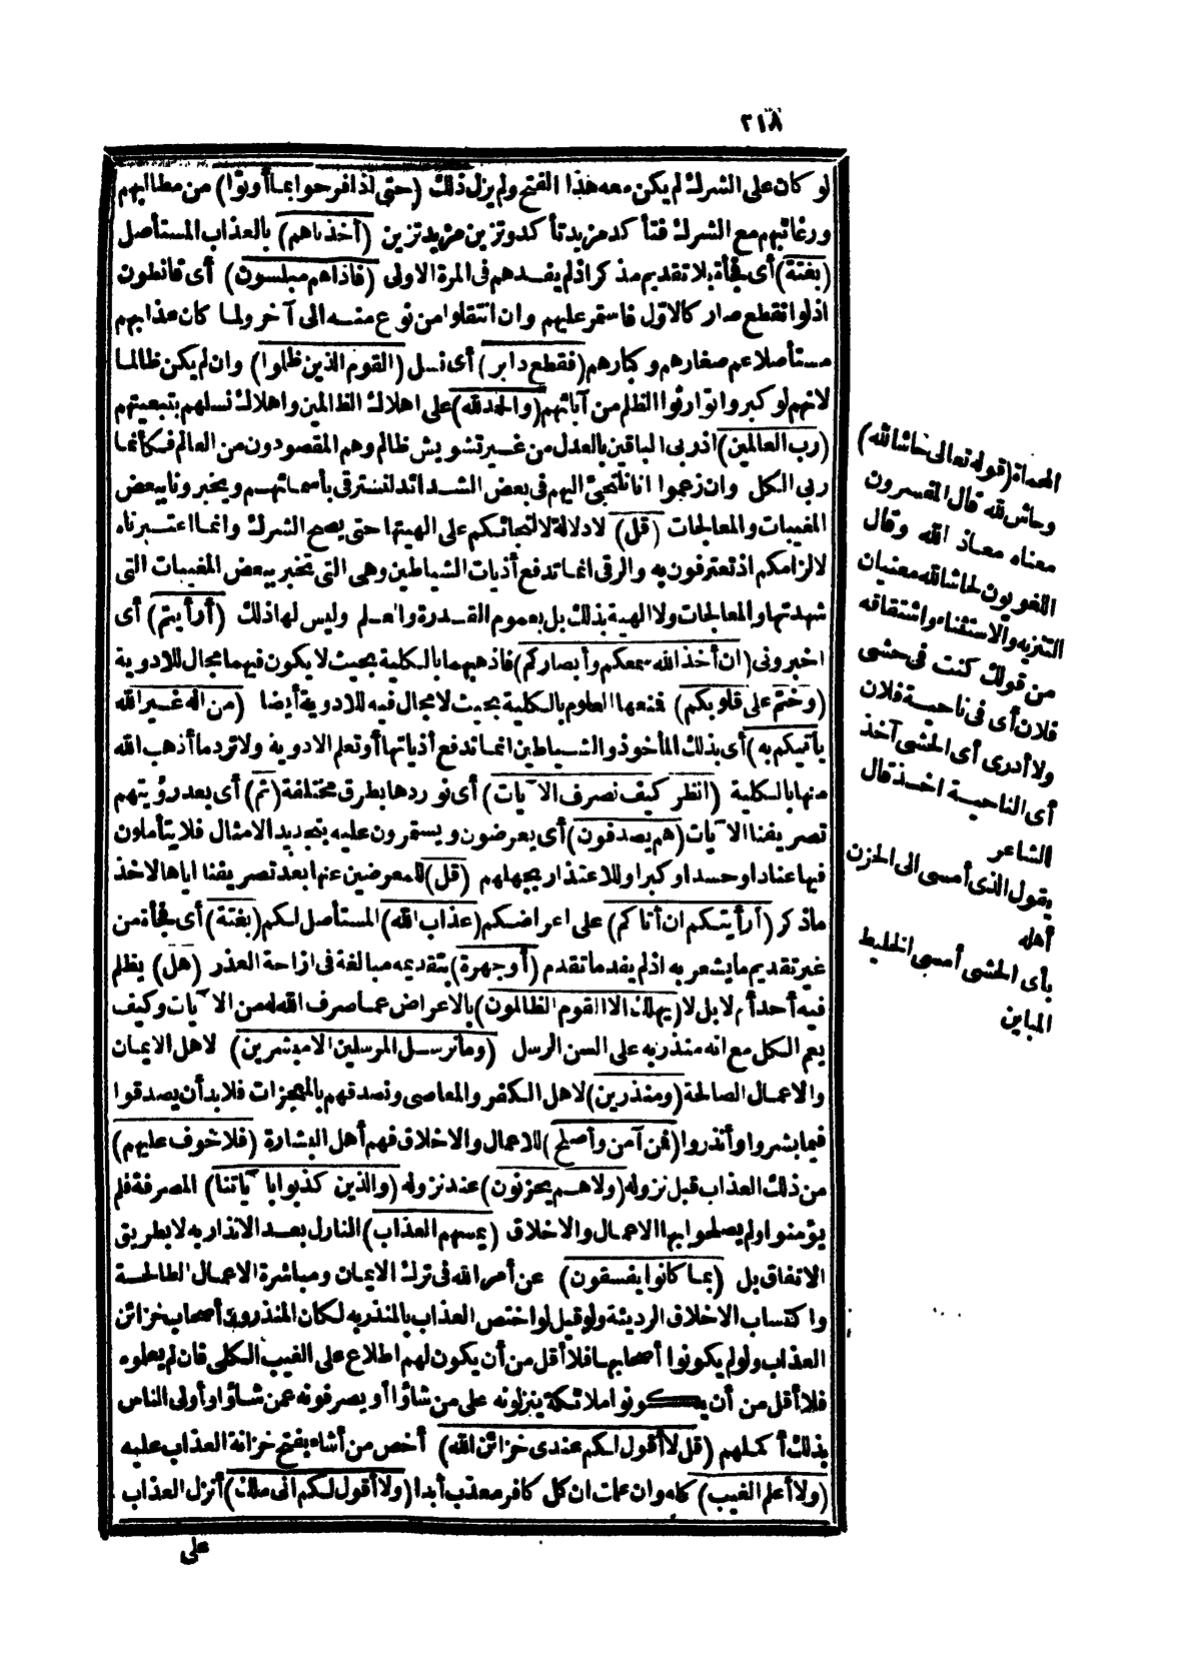 ٢١٨
لو كان على الشرك لم يكن معه هذا الفتح ولم يزل ذلك (حتى اذا فرحوا بما أوتوا) من مطالبهم
ورغائبهم مع الشرك فتأكد مزيد تأكد وتزين مزيد تزين (أخذناهم) بالعذاب المستأصل
(بغتة) أى فجأة بلا تقديم مذكر اذ لم يفدهم فى المرة الاولى (فاذا هم مبلسون) أى قانطون
اذ لو انقطع صار كالاوّل فاستمر عليهم وان انتقلوا من نوع منه الى آخر ولما كان عذابهم
مستأصلا عم صغارهم وكبارهم (فقطع دابر) أى نسل (القوم الذين ظلموا) وان لم يكن ظالما
لانهم لو كبروا توارثوا الظلم من آبائهم (والحمد لله) على اهلاك الظالمين واهلاك نسلهم بتبعيتهم
(رب العالمين) اذ ربى الباقين بالعدل من غير تشويش ظالم وهم المقصودون من العالم فكأنما
ربى الكل وان زعموا انا نلتجئ اليهم فى بعض الشدائد لنسترقى بأسمائهم ويخبروننا ببعض
المغيبات والمعالجات (قل) لا دلالة لالتجائكم على الهيتها حتى يصح الشرك وانما اعتبرناه
لالزامكم اذ تعترفون به والرقى انما تدفع أذيات الشياطين وهى التى تخبر ببعض المغيبات التى
شهدتها والمعالجات ولا الهية بذلك بل بعموم القدرة والعلم وليس لها ذلك (أرأيتم) أى
اخبرونى (ان أخذ الله سمعكم وأبصاركم) فاذهبهما بالكلية بحيث لا يكون فيهما مجال للادوية
(وختم على قلوبكم) فمنعها العلوم بالكلية بحيث لا مجال فيه للادوية أيضا (من اله غير الله
يأتيكم به) أى بذلك المأخوذ والشياطين انما تدفع أذياتها أو تعلم الادوية ولا ترد ما أذهب الله
منها بالكلية (انظر كيف نصرف الآيات) أى نوردها بطرق مختلفة (ثم) أى بعد رؤيتهم
تصريفنا الآيات (هم يصدفون) أى يعرضون ويستمرون عليه بتجديد الامثال فلا يتأملون
فيها عنادا وحسدا وكبرا وللاعتذار بجهلهم (قل) للمعرضين عنها بعد تصريفنا اياها لاخذ
ما ذكر (أرأيتكم ان أتاكم) على اعراضكم (عذاب الله) المستأصل لكم (بغتة) أى فجأة من
غير تقديم ما يشعر به اذ لم يفد ما تقدم (أو جهرة) بتقديمه مبالغة فى ازاحة العذر (هل) يظلم
فيه أحد أم لا بل لا (يهلك الا القوم الظالمون) بالاعراض عما صرف الله له من الآيات وكيف
يعم الكل مع انه منذر به على السن الرسل (وما نرسل المرسلين الا مبشرين) لاهل الايمان
والاعمال الصالحة (ومنذرين) لاهل الكفر والمعاصى ونصدقهم بالمعجزات فلا بد أن يصدقوا
فيما بشروا وأنذروا (فمن آمن وأصلح) للاعمال والاخلاق فهم أهل البشارة (فلا خوف عليهم)
من ذلك العذاب قبل نزوله (ولا هم يحزنون) عند نزوله (والذين كذبوا بآياتنا) المصرفة فلم
يؤمنوا ولم يصلحوا بها الاعمال والاخلاق (يمسهم العذاب) النازل بعد الانذار به لا بطريق
الاتفاق بل (بما كانوا يفسقون) عن أمر الله فى ترك الايمان ومباشرة الاعمال الطالحة
واكتساب الاخلاق الرديئة ولو قيل لو اختص العذاب بالمنذر به لكان المنذرون أصحاب خزائن
العذاب ولو لم يكونوا أصحابها فلا أقل من أن يكون لهم اطلاع على الغيب الكلى فان لم يعلموه
فلا أقل من أن يكونوا ملائكة ينزلونه على من شاؤا أو يصرفونه عمن شاؤا وأولى الناس
بذلك أكملهم (قل لا أقول لكم عندى خزائن الله) أخص من أشاء بفتح خزانة العذاب عليه
(ولا أعلم الغيب) كله وان علمت ان كل كافر معذب أبدا (ولا أقول لكم انى ملك) أنزل العذاب
على
الحماة (قوله تعالى حاشا لله)
وحاش لله قال المفسرون
معناه معاذ الله وقال
اللغويون لحاشا لله معنيان
التنزيه والاستثناء واشتقاقه
من قولك كنت فى حشى
فلان أى فى ناحية فلان
ولا أدرى أى الحشى آخذ
أى الناحية اخذ قال
الشاعر
يقول الذى أمسى الى الحزن
أهله
بأى الحشى أمسى الخليط
المباين